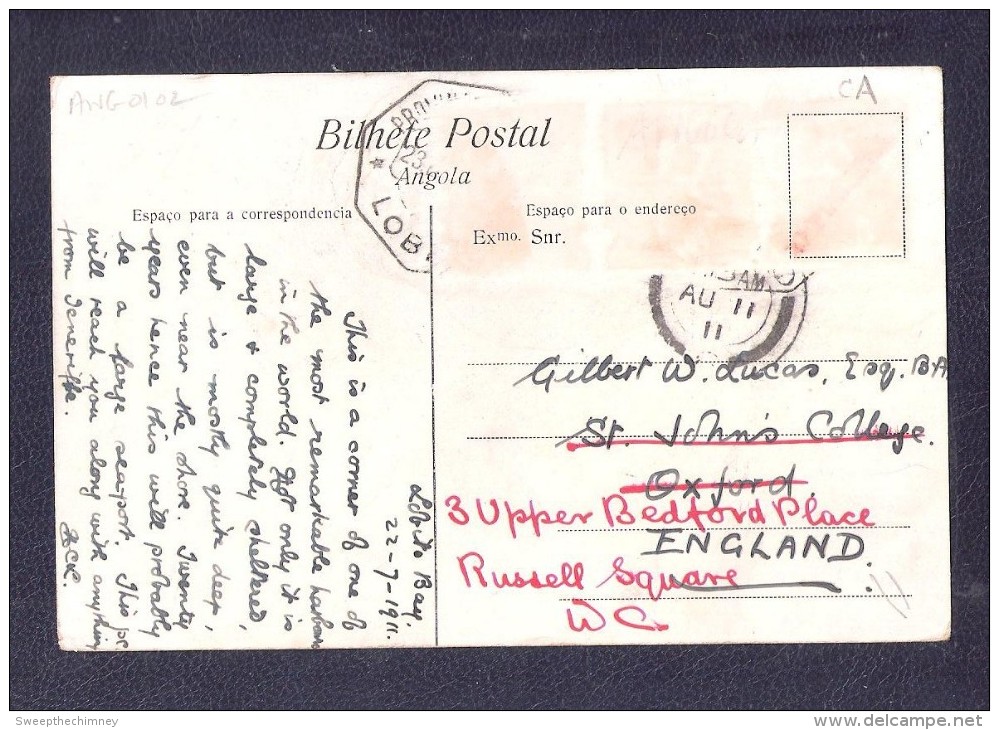 ANG0102
CA
PROVIN
23
LOB
Bilhete Postal
Angola
Espaço para a correspondencia
Espaço para o endereço
Exmo. Snr.
AM
AU 11
11
Lobito Bay.
22-7-1911.
This is a corner of one of
the most remarkable harbors
in the world. Not only it is
large & completely sheltered,
but is mostly quite deep,
even near the shore. Twenty
years hence this will probably
be a large seaport. This pc
will reach you along with anything
from Teneriffe.
Gilbert W. Lucas, Esq. B.A.
St. John's College.
Oxford.
ENGLAND.
3 Upper Bedford Place
Russell Square
WC
Sweepthechimney
delcampe.net